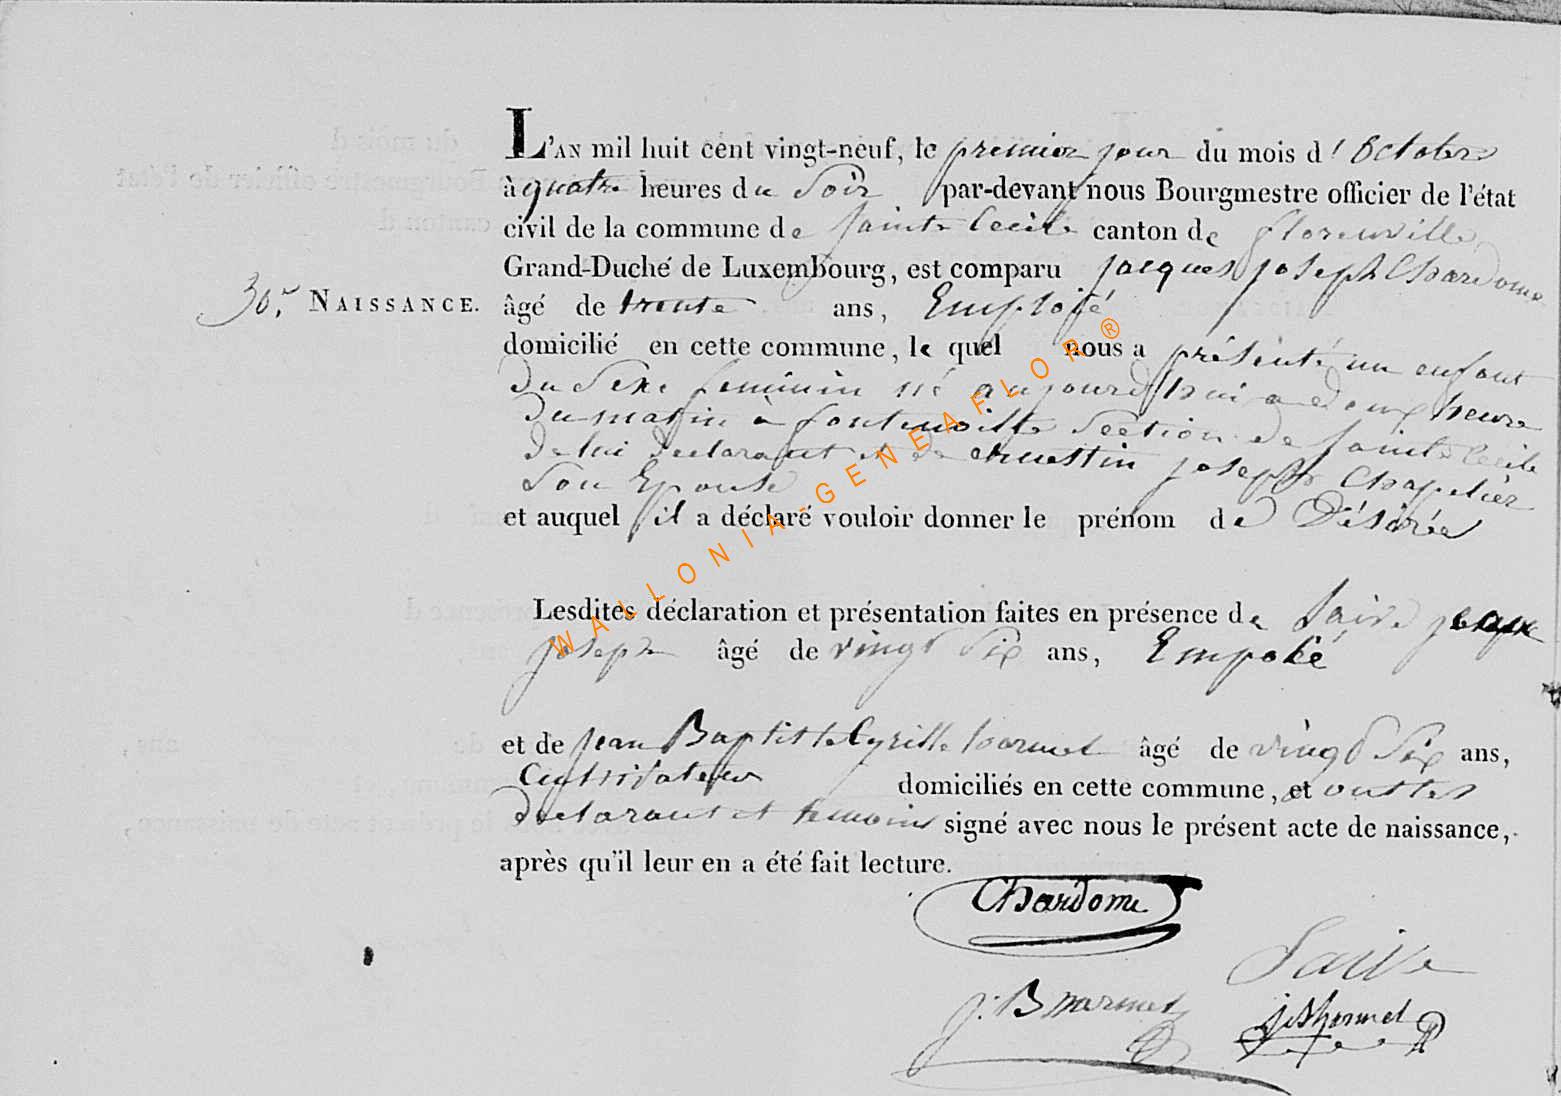 L'AN mil huit cent vingt-neuf, le premier jour du mois d'Octobre
à quatre heures du Soir par-devant nous Bourgmestre officier de l'état
civil de la commune de Sainte Cecile canton de florenville
Grand-Duché de Luxembourg, est comparu jacques joseph Chardome
30.e NAISSANCE. âgé de trente ans, Emploié
domicilié en cette commune, le quel nous a présenté un enfant
du Sexe feminin né aujourd'hui a deux heure
du matin à fontenoille Section de Sainte Cecile
de lui declarant et de joseph Chapelier
Son Epouse
et auquel il a déclaré vouloir donner le prénom de Désirée
Lesdites déclaration et présentation faites en présence de
joseph âgé de vingt Six ans, Empoié
et de jean Baptiste Cyrille âgé de vingt Six ans,
Cultivateur domiciliés en cette commune, et ont les
declarant et temoins signé avec nous le présent acte de naissance,
après qu'il leur en a été fait lecture.
Chardome
WALLONIA-GENEAFLOR®